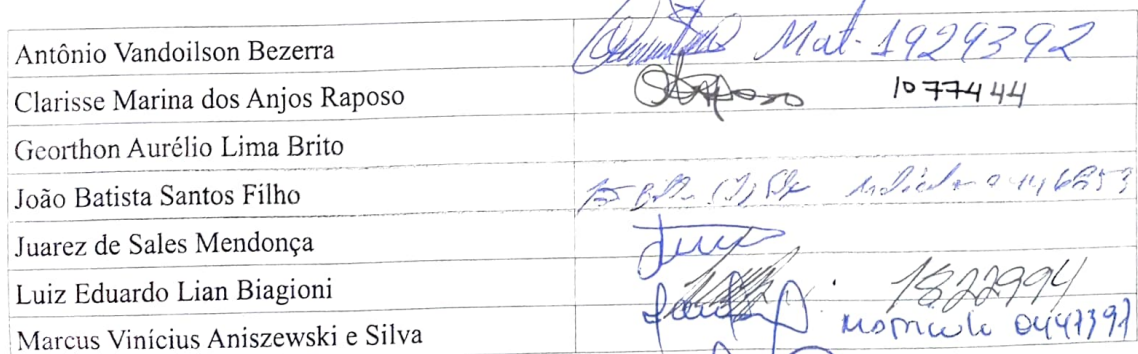 Antônio Vandoilson Bezerra Mat. 1929392
Clarisse Marina dos Anjos Raposo 1077444
Georthon Aurélio Lima Brito
João Batista Santos Filho
Juarez de Sales Mendonça
Luiz Eduardo Lian Biagioni 1822994
Marcus Vinícius Aniszewski e Silva